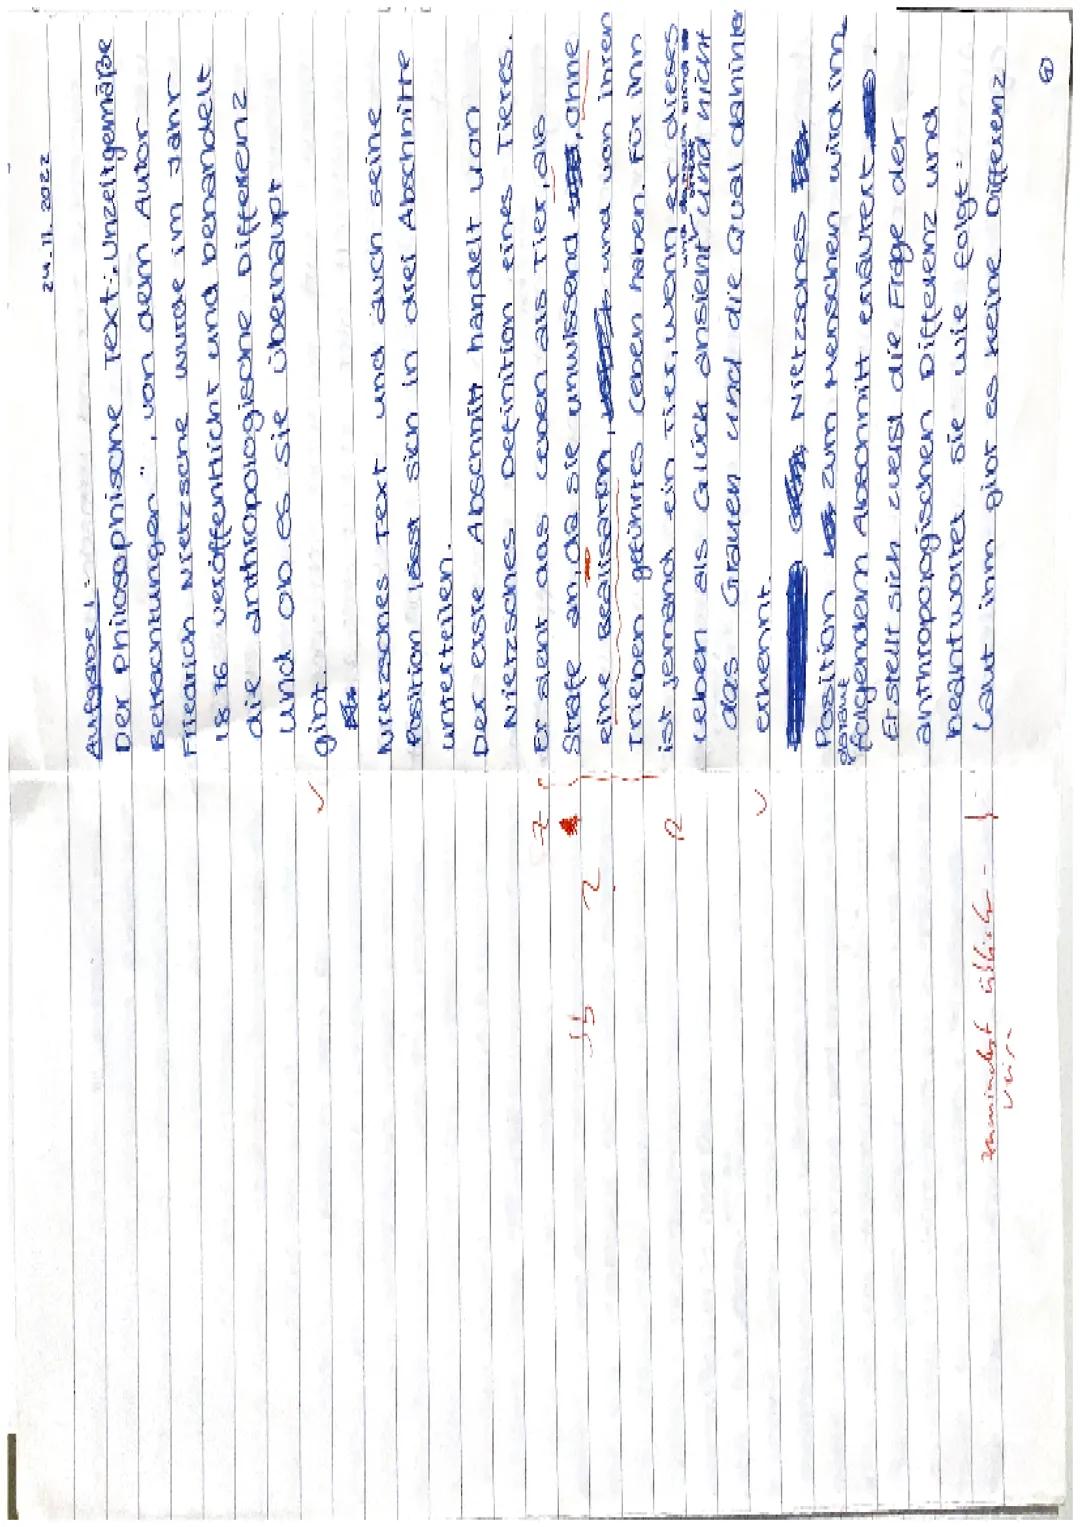 24.11.2022
Aufgabe 1:
Der philosophische Text „Unzeitgemäße
Betrachtungen", von dem Autor
Friedrich Nietzsche wurde im Jahr
1876 veröffentlicht und behandelt
die anthropologische Differenz
und ob es sie überhaupt
gibt. ✓
Nietzsches Text und auch seine
Position lässt sich in drei Abschnitte
unterteilen.
Der erste Abschnitt handelt von
Nietzsches Definition eines Tieres.
Er sieht das Leben als Tier, als Z
Strafe an, da sie unwissend, ohne
eine Realisation, und von ihren Z
Trieben geführtes Leben haben. Für ihn
ist jemand ein Tier, wenn er dieses R
Leben als Glück ansieht und nicht
das Grauen und die Qual dahinter
erkennt. ✓
Nietzsches
Position zum Menschen wird im
darauf
folgendem Abschnitt erläutert.
Er stellt sich zuerst die Frage der
anthropologischen Differenz und
beantwortet sie wie folgt:
Laut ihm gibt es keine Differenz
zumindest üblicher-
weise
1